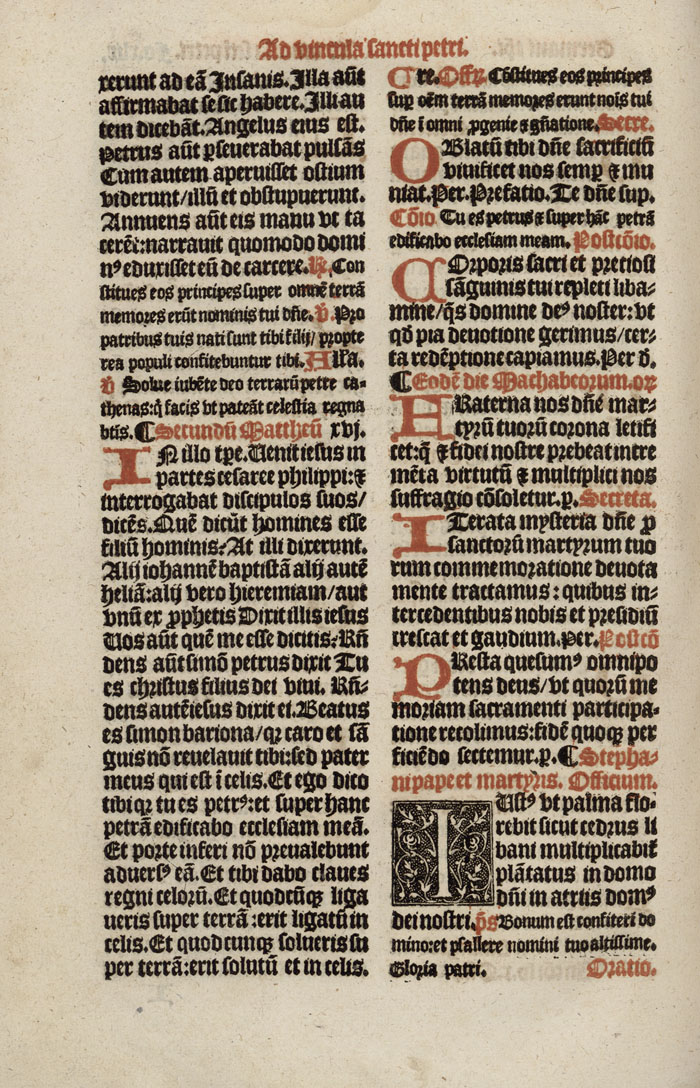 Ad vincula sancti petri.
xerunt ad eā Insanis. Illa aūt
affirmabat se sic habere. Illi au
tem dicebāt. Angelus eius est.
Petrus aūt ꝑseuerabat pulsās
Cum autem aperuisset ostium
viderunt/illū et obstupuerunt.
Annuens aūt eis manu vt ta
cerēt: narrauit quomodo domi
nꝰ eduxisset eū de carcere. ℟. Con
stitues eos principes super omnē terrā
memores erūt nominis tui dñe. ℣. Pro
patribus tuis nati sunt tibi filij/propte
rea populi confitebuntur tibi. Alła.
℣ Solue iubēte deo terrarū petre ca-
thenas: q̄ facis vt pateāt celestia regna
btīs. ¶ Secundū Mattheū xvj.
IN illo tp̄e. Uenit iesus in
partes cesaree philippi: ⁊
interrogabat discipulos suos/
dicēs. Quē dicūt homines esse
filiū hominis: At illi dixerunt.
Alij iohannē baptistā alij autē
heliā: alij vero hieremiam/aut
vnū ex ꝓphetis Dixit illis iesus
Uos aūt quē me esse dicitis: Rñ
dens aūt simō petrus dixit Tu
es christus filius dei viui. Rñ-
dens autē iesus dixit ei. Beatus
es simon bariona/qꝛ caro et sā
guis nō reuelauit tibi: sed pater
meus qui est ī celis. Et ego dico
tibi qꝛ tu es petrꝰ: et super hanc
petrā edificabo ecclesiam meā.
Et porte inferi nō preualebunt
aduersꝰ eā. Et tibi dabo claues
regni celorū. Et quodcūqꝫ liga
ueris super terrā: erit ligatū in
celis. Et quodcunqꝫ solueris su
per terrā: erit solutū et in celis.
Cre. Offr. Cōstitues eos principes
suꝑ oēm terrā memores erunt noīs tui
dñe ī omni ꝓgenie ⁊ gñatione. Secre.
OBlatū tibi dñe sacrificiū
viuificet nos semꝑ ⁊ mu
niat. Per. Prefatio. Te dñe sup.
Cōio Tu es petrus ⁊ super hāc petrā
edificabo ecclesiam meam. Postcōio.
COrporis sacri et preciosi
sāguinis tui repleti liba-
mine/q̄s domine deꝰ noster: vt
qđ pia deuotione gerimus/cer-
ta redēptione capiamus. Per đ.
¶ Eodē die Machabeorum. or
FRaterna nos dñē mar-
tyrū tuorū corona letifi
cet: q̄ ⁊ fidei nostre prebeat incre
mēta virtutū ⁊ multiplici nos
suffragio cōsoletur. ꝑ. Secreta.
ITerata mysteria dñe ꝓ
sanctorū martyrum tuo
rum commemoratione deuota
mente tractamus: quibus in-
tercedentibus nobis et presidiū
crescat et gaudium. Per. Postcō
PResta quesumꝰ omnipo
tens deus/vt quorū me
moriam sacramenti participa-
tione recolimus: fidē quoqꝫ per
ficiēdo sectemur. ꝑ. ¶ Stepha-
ni pape et martyris. Officium.
IUstꝰ vt palma flo-
rebit sicut cedrus li
bani multiplicabit̄
plātatus in domo
dn̄i in atriis domꝰ
dei nostri. p̄s Bonum est confiteri do
mino: et psallere nomini tuo altissime.
Gloria patri. Oratio.